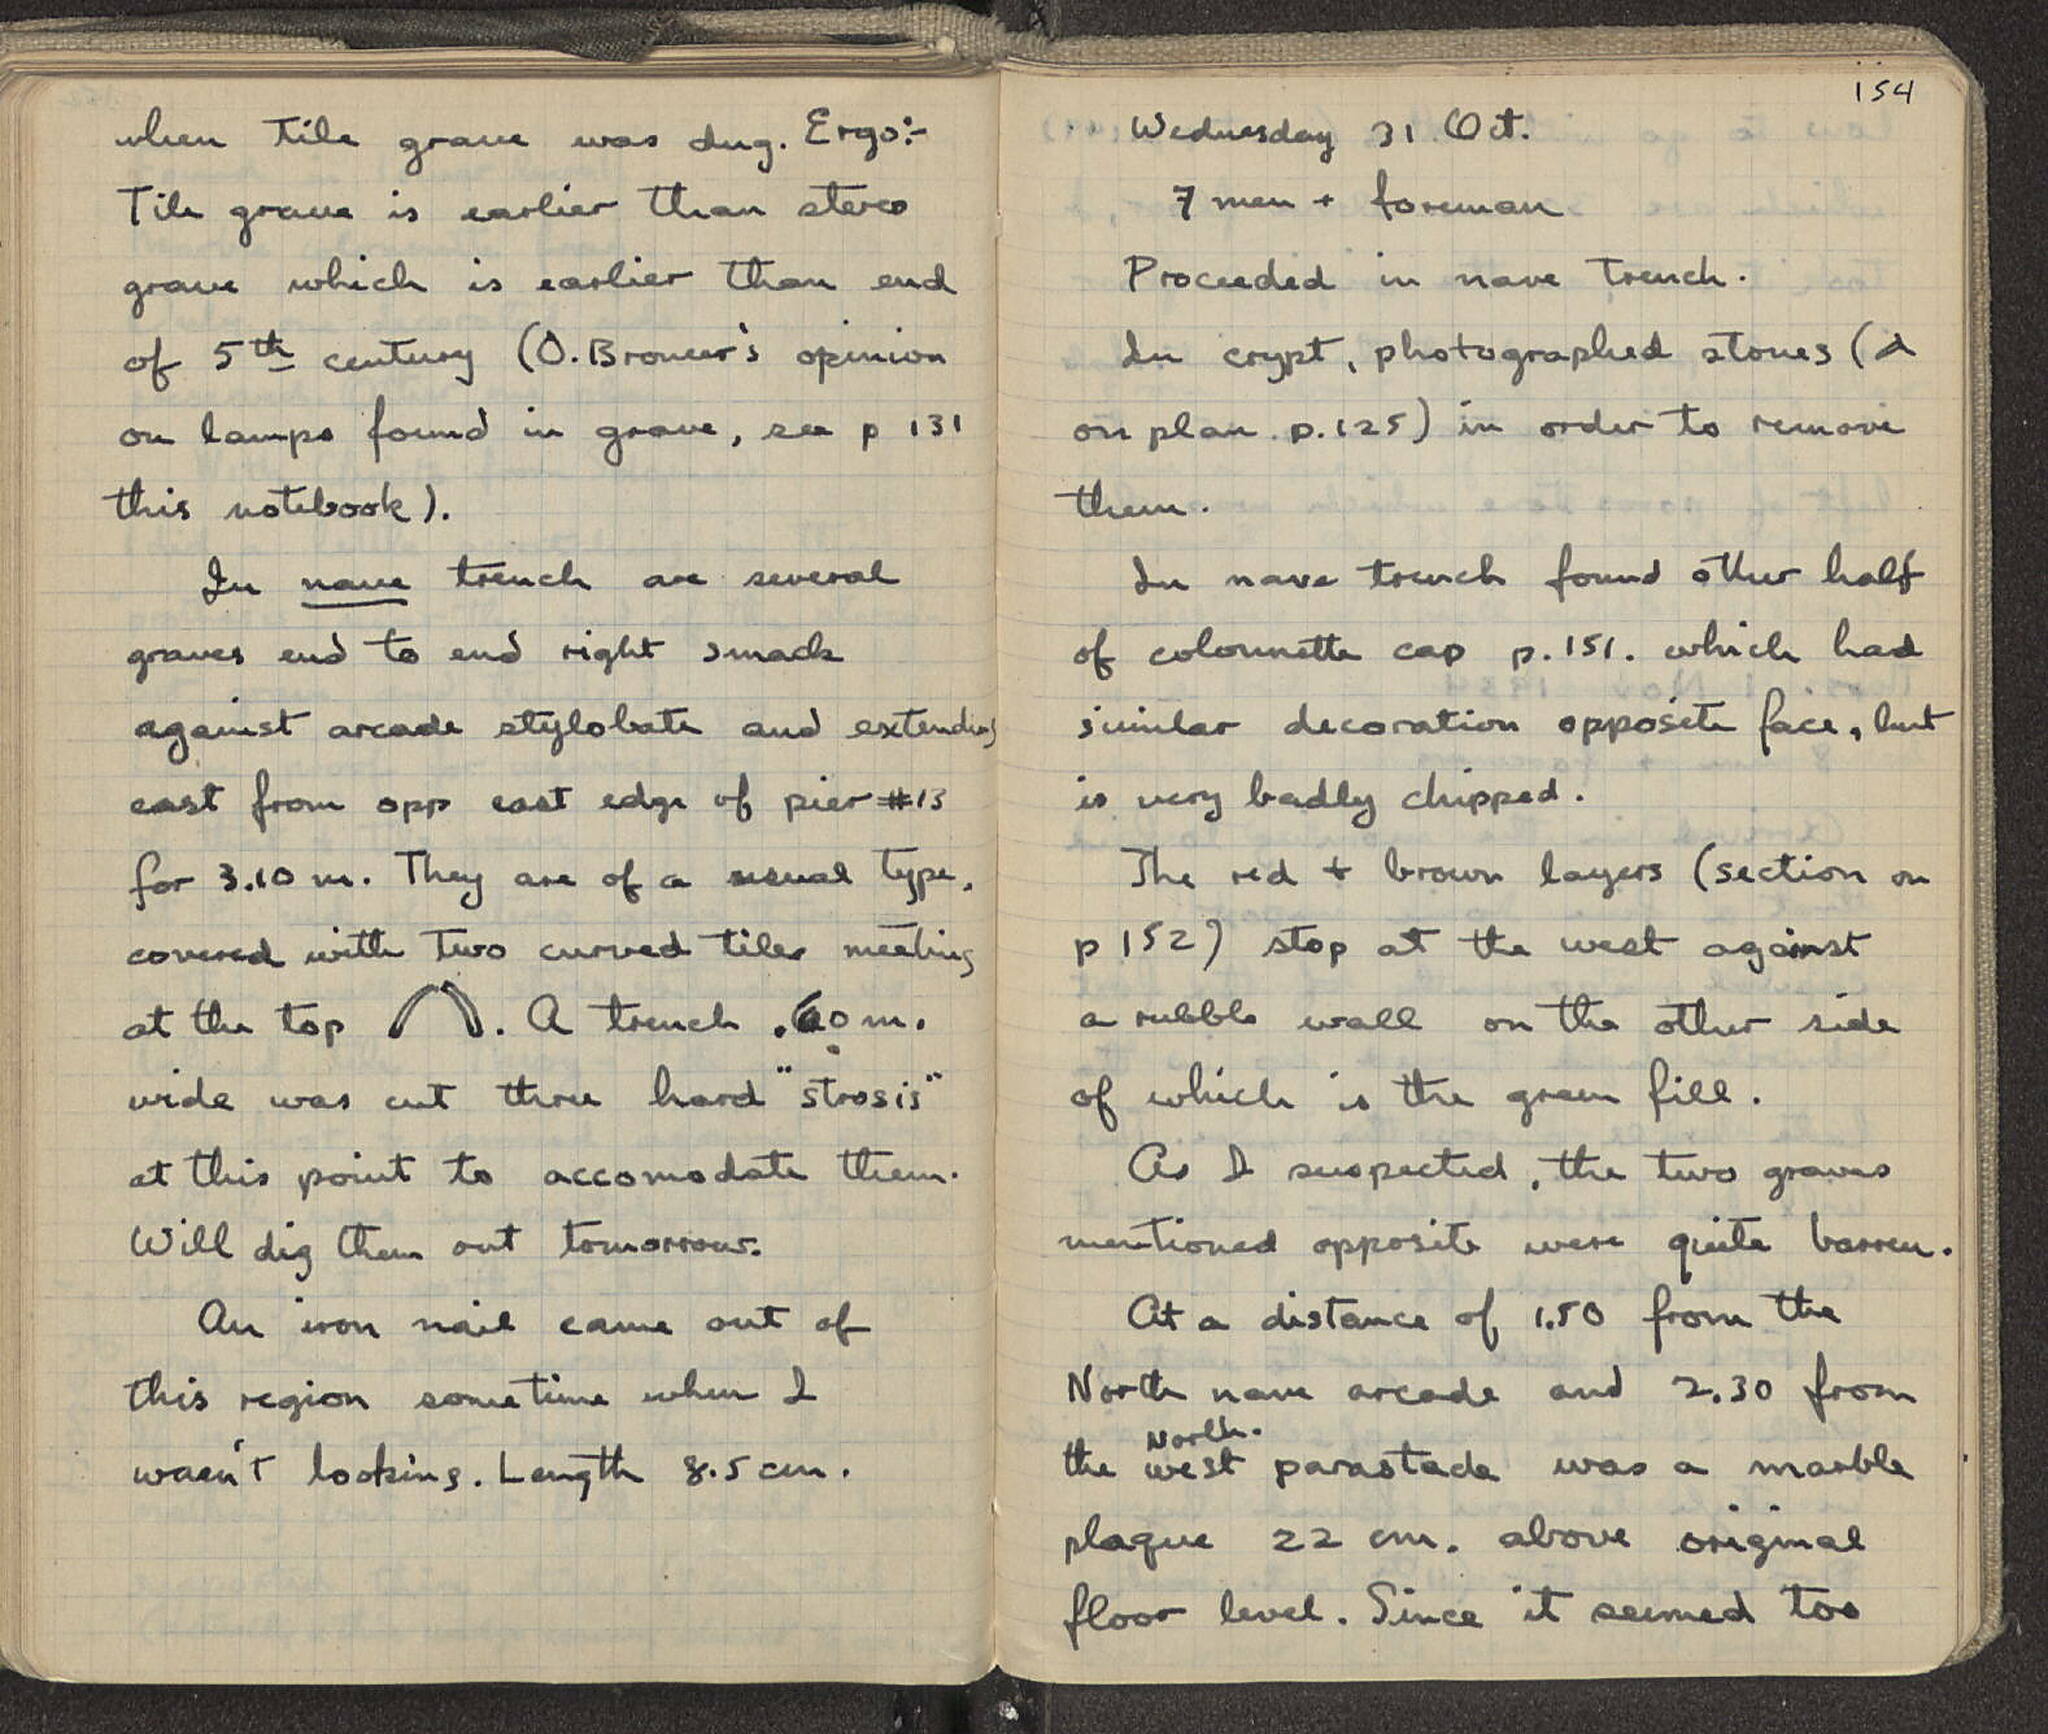 when tile grave was dug. Ergo:-
Tile grave is earlier than stereo
grave which is earlier than end
of 5th century (O. Broneer's opinion
on lamps found in grave, see p 131
this notebook).
In nave trench are several
graves end to end right smack
against arcade stylobate and extending
east from opp east edge of pier #13
for 3.10 m. They are of a usual type,
covered with two curved tiles meeting
at the top . A trench .60 m.
wide was cut thru hard "strosis"
at this point to accomodate them.
Will dig them out tomorrow.
An iron nail came out of
this region sometime when I
wasn't looking. Length 8.5 cm.
154
Wednesday 31 Oct.
7 men + foreman
Proceeded in nave trench.
In crypt, photographed stones (
on plan p. 125) in order to remove
them.
In nave trench found other half
of colonnette cap p. 151. which had
similar decoration opposite face, but
is very badly chipped.
The red + brown layers (section on
p 152) stop at the west against
a rubble wall on the other side
of which is the green fill.
As I suspected, the two graves
mentioned opposite were quite barren.
At a distance of 1.50 from the
North nave arcade and 2.30 from
North.
the west parastade was a marble
plaque 22 cm. above original
floor level. Since it seemed too